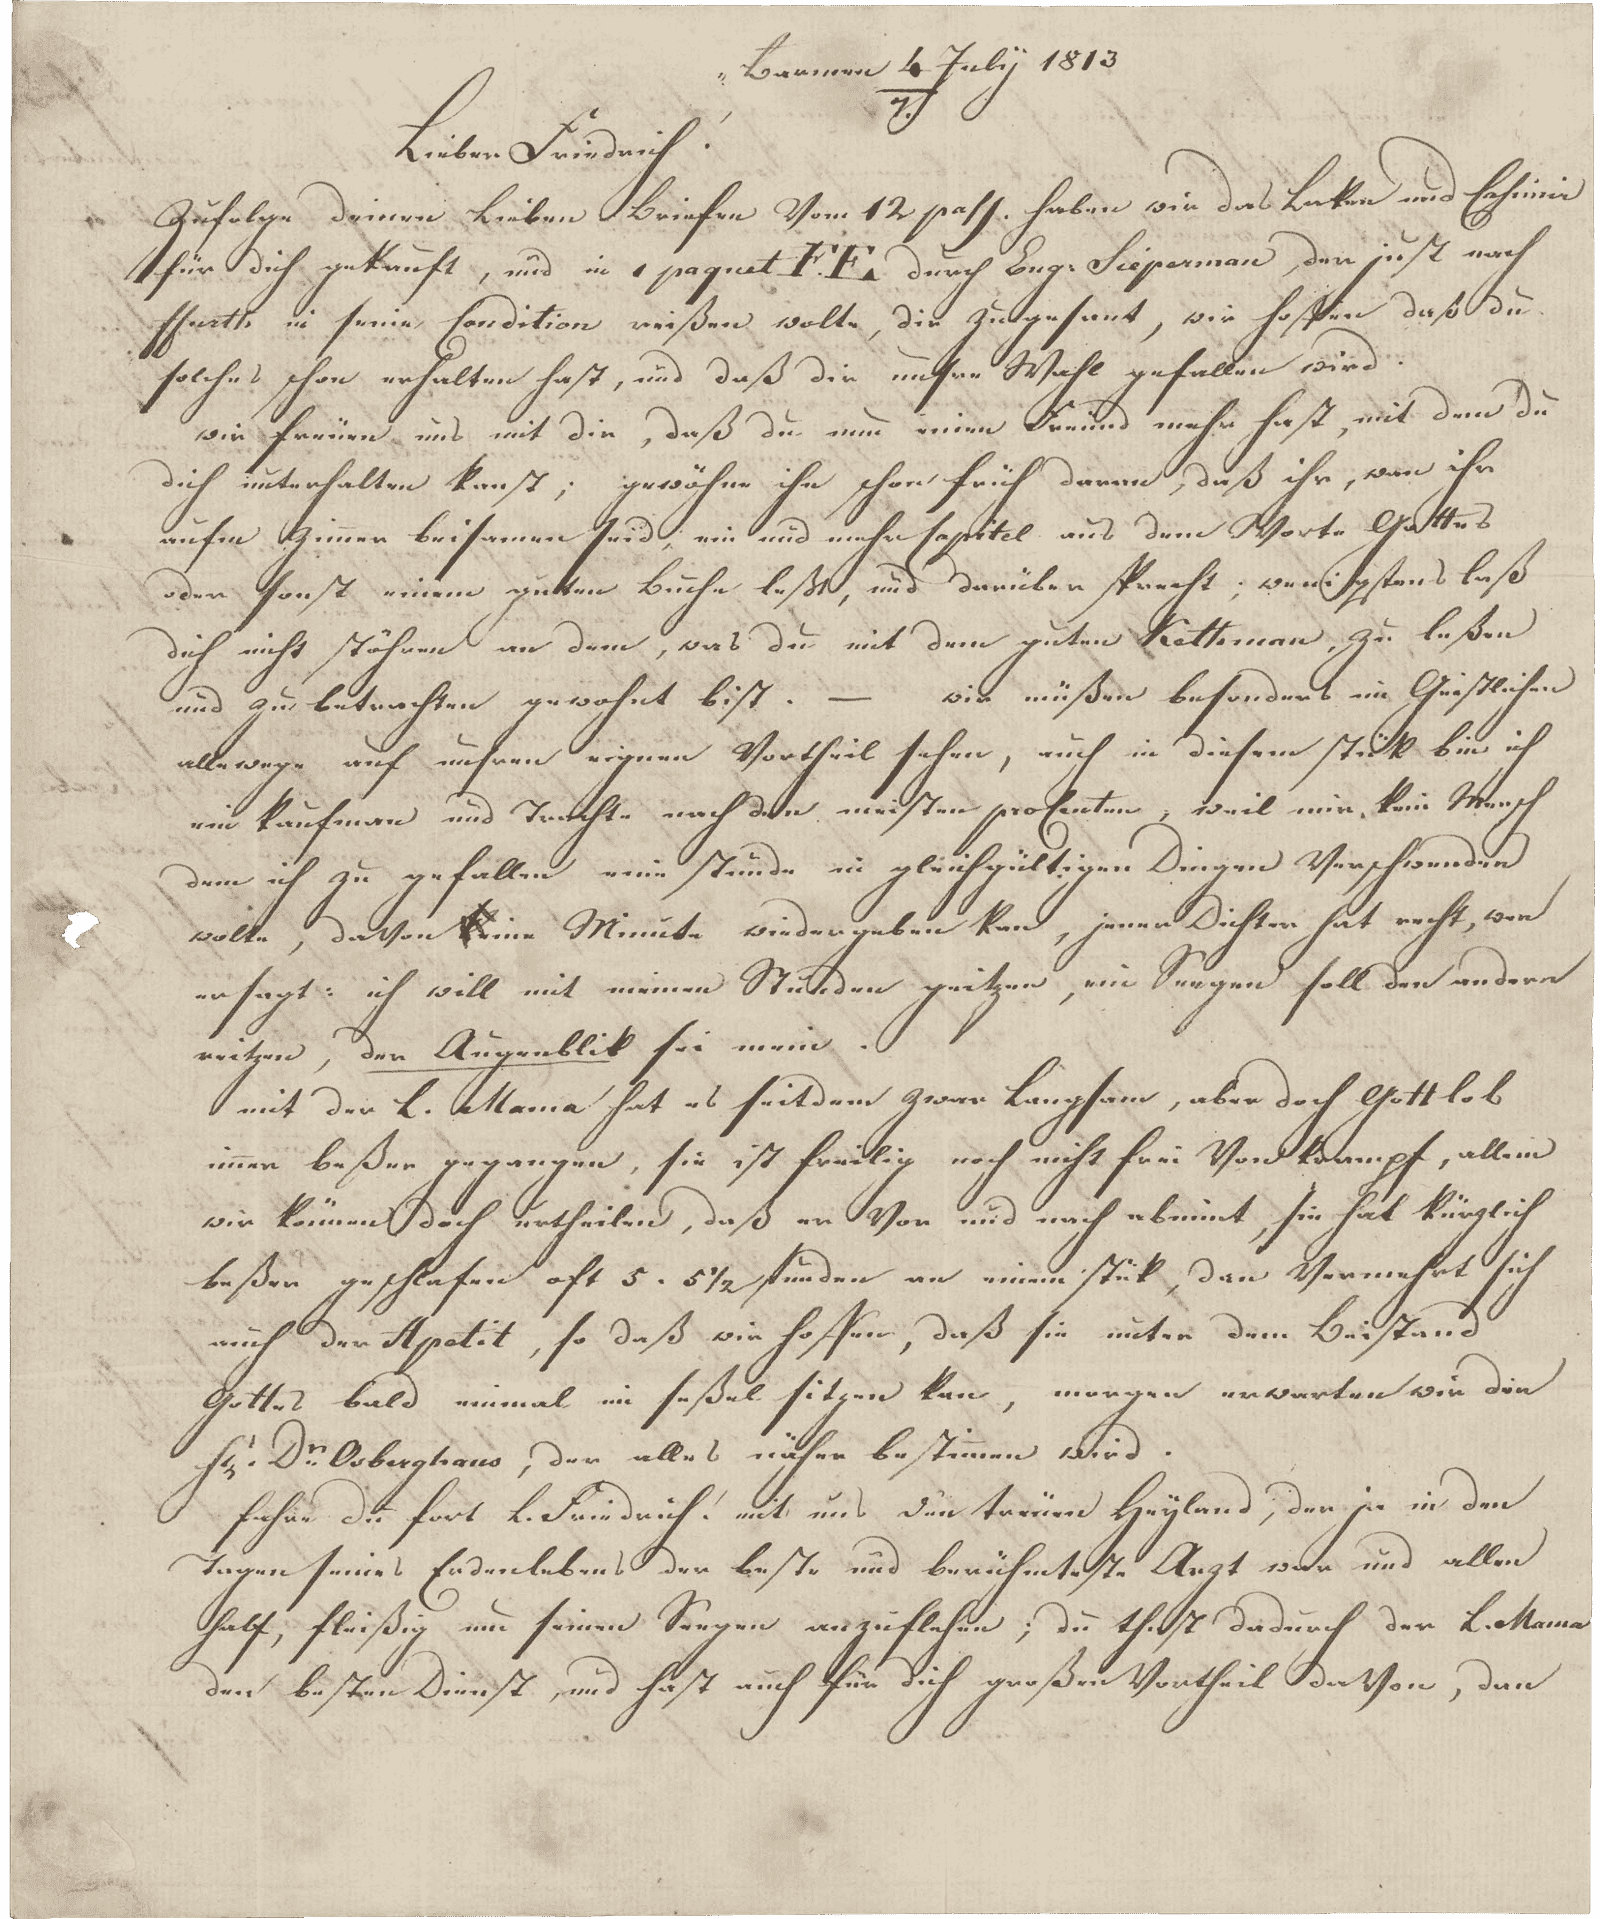 Barmen 4 July 1813
7.
Lieber Friedrich!
Zufolge deinen Lieben Briefen Vom 12 pass. haben wir das Laken und Casimir
für dich gekauft, und in 1 paquet F.E. durch Eng: Sieperman, der just nach
in seine Condition reißen wolte, dir zugesant, wir hoffen daß du
solches schon erhalten hast, und daß dir unsre Wahl gefallen wird.
wir freuen uns mit dir, daß du nun einen Freund mehr hast, mit dem du
dich unterhalten kanst; gewöhne ihn schon früh daran, daß ihr, wan ihr
aufm Zimer beisamen seid, ein und mehr Capitel aus dem Worte Gottes
oder sonst einem guten Buche leßt, und darüber sprecht; wenigstens laß
dich nicht stöhren an dem, was du mit dem guten Kethman, zu leßen
und zu betrachten gewohnt bist. — wir müßen besonders im Geistlichen
allewege auf unsren eignen Vortheil sehen, auch in diesem stük bin ich
ein Kaufman und Trachte nach den meisten proCenten, weil mir kein Mensch
dem ich zu gefallen eine stunde in gleichgültigen Dingen Verschwenden
wolte, davon eine Minute wiedergeben kan, jener Dichter hat recht, wen
er sagt: ich will mit meinen Stunden geitzen, ein Seegen soll den andern
reitzen, der Augenblik sei mein.
mit der L. Mama hat es seitdem zwar Langsam, aber doch Gott lob
imer beßer gegangen, sie ist freilig noch nicht frei Von Krampf, allein
wir können doch urtheilen, daß er Vor und nach abnimt, sie hat kürzlich
beßer geschlafen oft 5. 5½ stunden an einem stük, dan Vermehrt sich
auch der Apetit, so daß wir hoffen, daß sie unter dem Beistand
Gottes bald einmal im seßel sitzen kan, morgen erwarten wir den
H. Dr. Osberghaus, der alles näher bestimen wird.
fahre du fort L. Friedrich! mit uns den treuen Heyland, der ja in den
Tagen seines Erdenlebens der beste und berühmteste Arzt war und allen
half, fleißig um seinen Seegen anzuflehen; du thust dadurch der L. Mama
den besten Dienst, und hast auch für dich großen Vortheil davon, dan